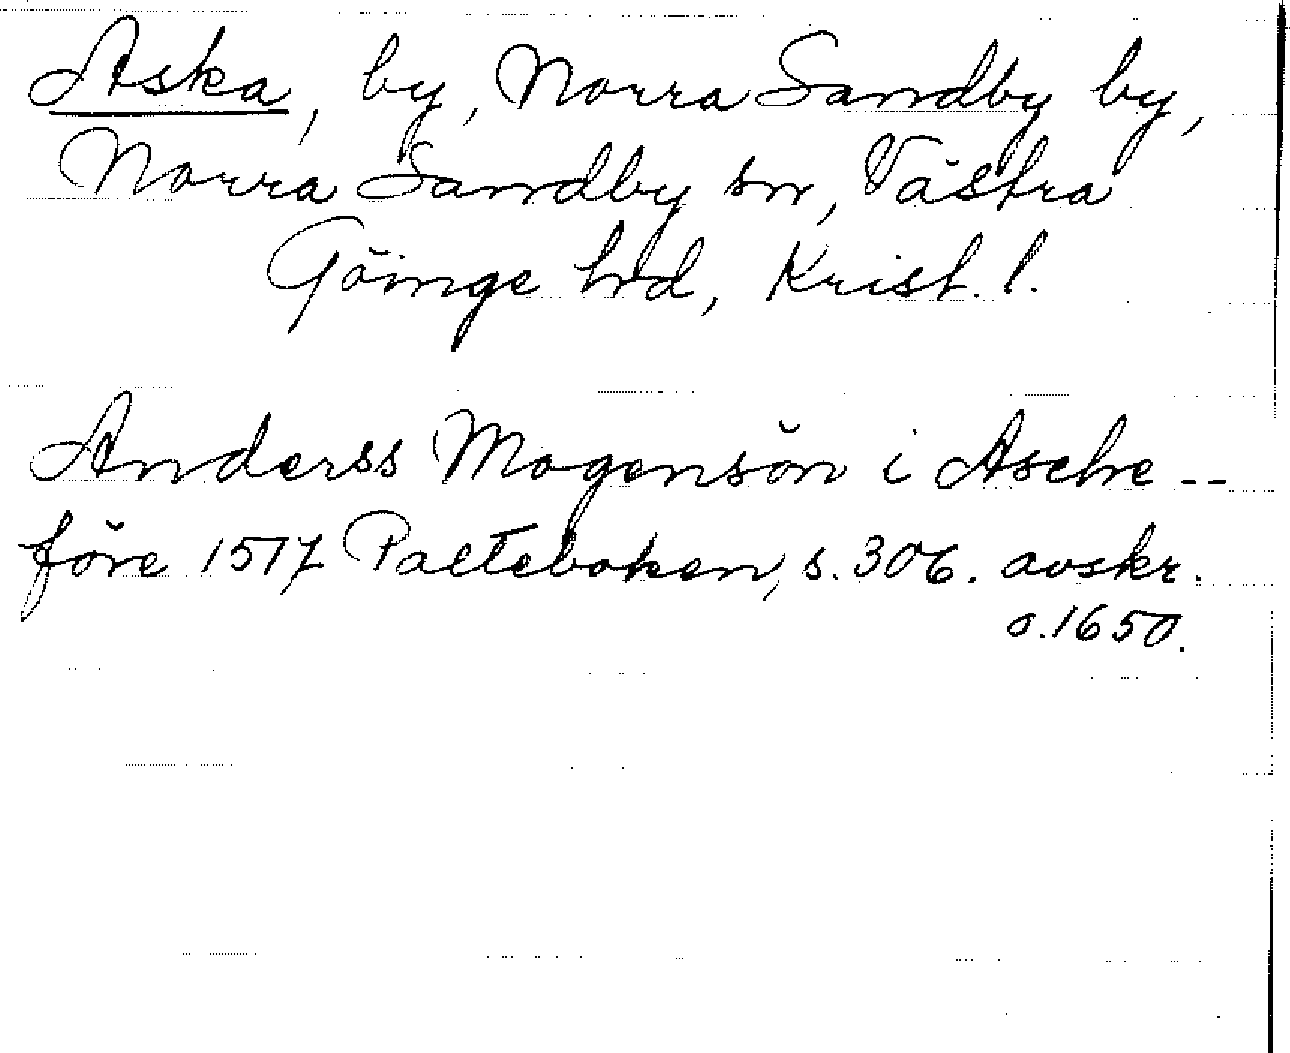 Aska, by, Norra Sandby by,
Norra Sandby sn, Västra
Göinge hrd, Krist. l.
Anderss Mogensön i Asche --
före 1517 Palteboken, s. 306. avskr.
o. 1650.